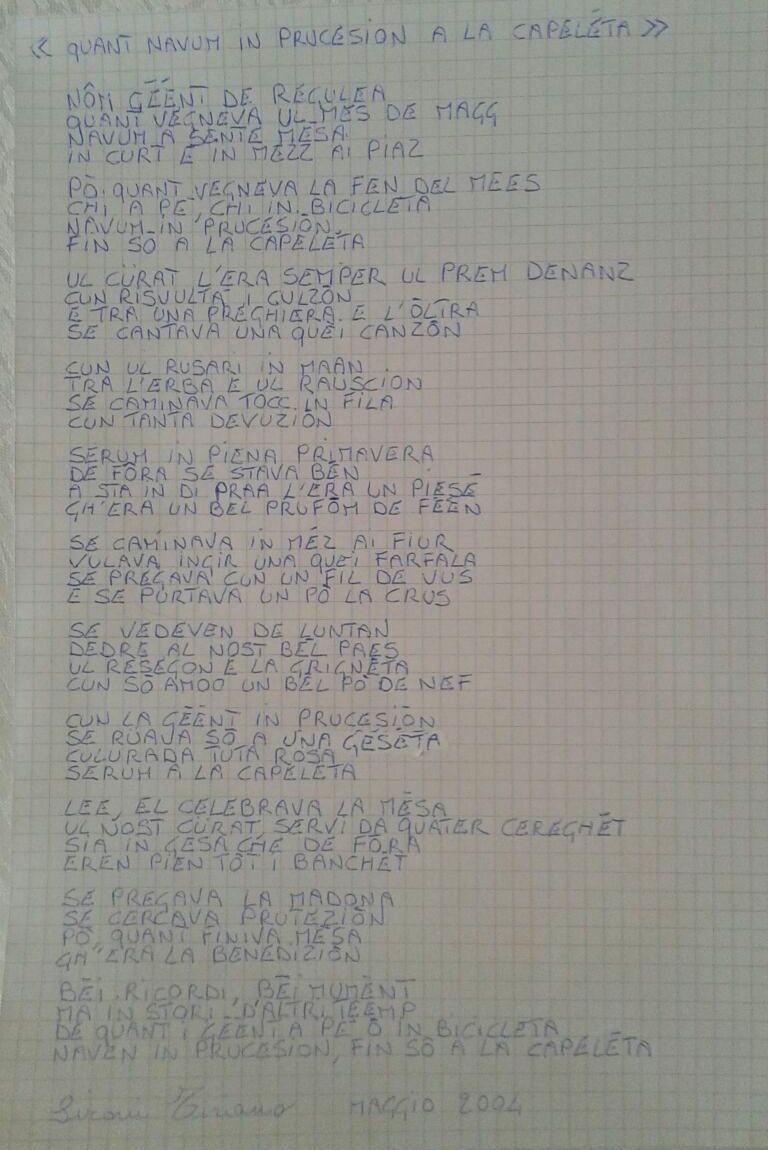 « QUANT NAVUM IN PRUCESION A LA CAPELĒTA »
NÔM GĒĒNT DE REGULEA
QUANT VEGNEVA UL MES DE MAGG
NAVUM A SENTE MESA
IN CURT E IN MEZZ AI PIAZ
PÖ QUANT VEGNEVA LA FEN DEL MEES
CHI A PE, CHI IN BICICLETA
NAVUM IN PRUCESION
FIN SÖ A LA CAPELĒTA
UL CURAT L'ERA SEMPER UL PREM DENANZ
CUN RISVULTA I CULZÖN
E TRA UNA PREGHIERA E L'ÖLTRA
SE CANTAVA UNA QUEI CANZÖN
CUN UL RUSARI IN MAAN
TRA L'ERBA E UL RAUSCION
SE CAMINAVA TOCC IN FILA
CUN TANTA DEVUZIÖN
SERUM IN PIENA PRIMAVERA
DE FÖRA SE STAVA BĒN
A STA IN DI PRAA L'ERA UN PIESĒ
GH'ERA UN BEL PRUFÖM DE FĒĒN
SE CAMINAVA IN MĒZ AI FIUR
VULAVA INGIR UNA QUEI FARFALA
SE PREGAVA CUN UN FIL DE VUS
E SE PURTAVA UN PÖ LA CRUS
SE VEDEVEN DE LUNTAN
DEDRE AL NOST BĒL PAES
UL RESEGON E LA GRIGNĒTA
CUN SÖ AMOO UN BĒL PÖ DE NEF
CUN LA GĒĒNT IN PRUCESIÖN
SE RUAVA SÖ A UNA GESĒTA
CULURADA TUTA ROSA
SERUM A LA CAPELETA
LEE, EL CELEBRAVA LA MĒSA
UL NOST CURAT SERVI DA QUATER CEREGHĒT
SIA IN GESA CHE DE FÖRA
EREN PIEN TÖT I BANCHĒT
SE PREGAVA LA MADONA
SE CERCAVA PRUTEZIÖN
PÖ, QUANT FINIVA MĒSA
GH'ERA LA BENEDIZIÖN
BĒI RICORDI, BĒI MUMĒNT
MA IN STORI D'ALTRI TEEMP
DE QUANT I GEENT A PE Ö IN BICICLĒTA
NAVEN IN PRUCESION, FIN SÖ A LA CAPELĒTA
MAGGIO 2004